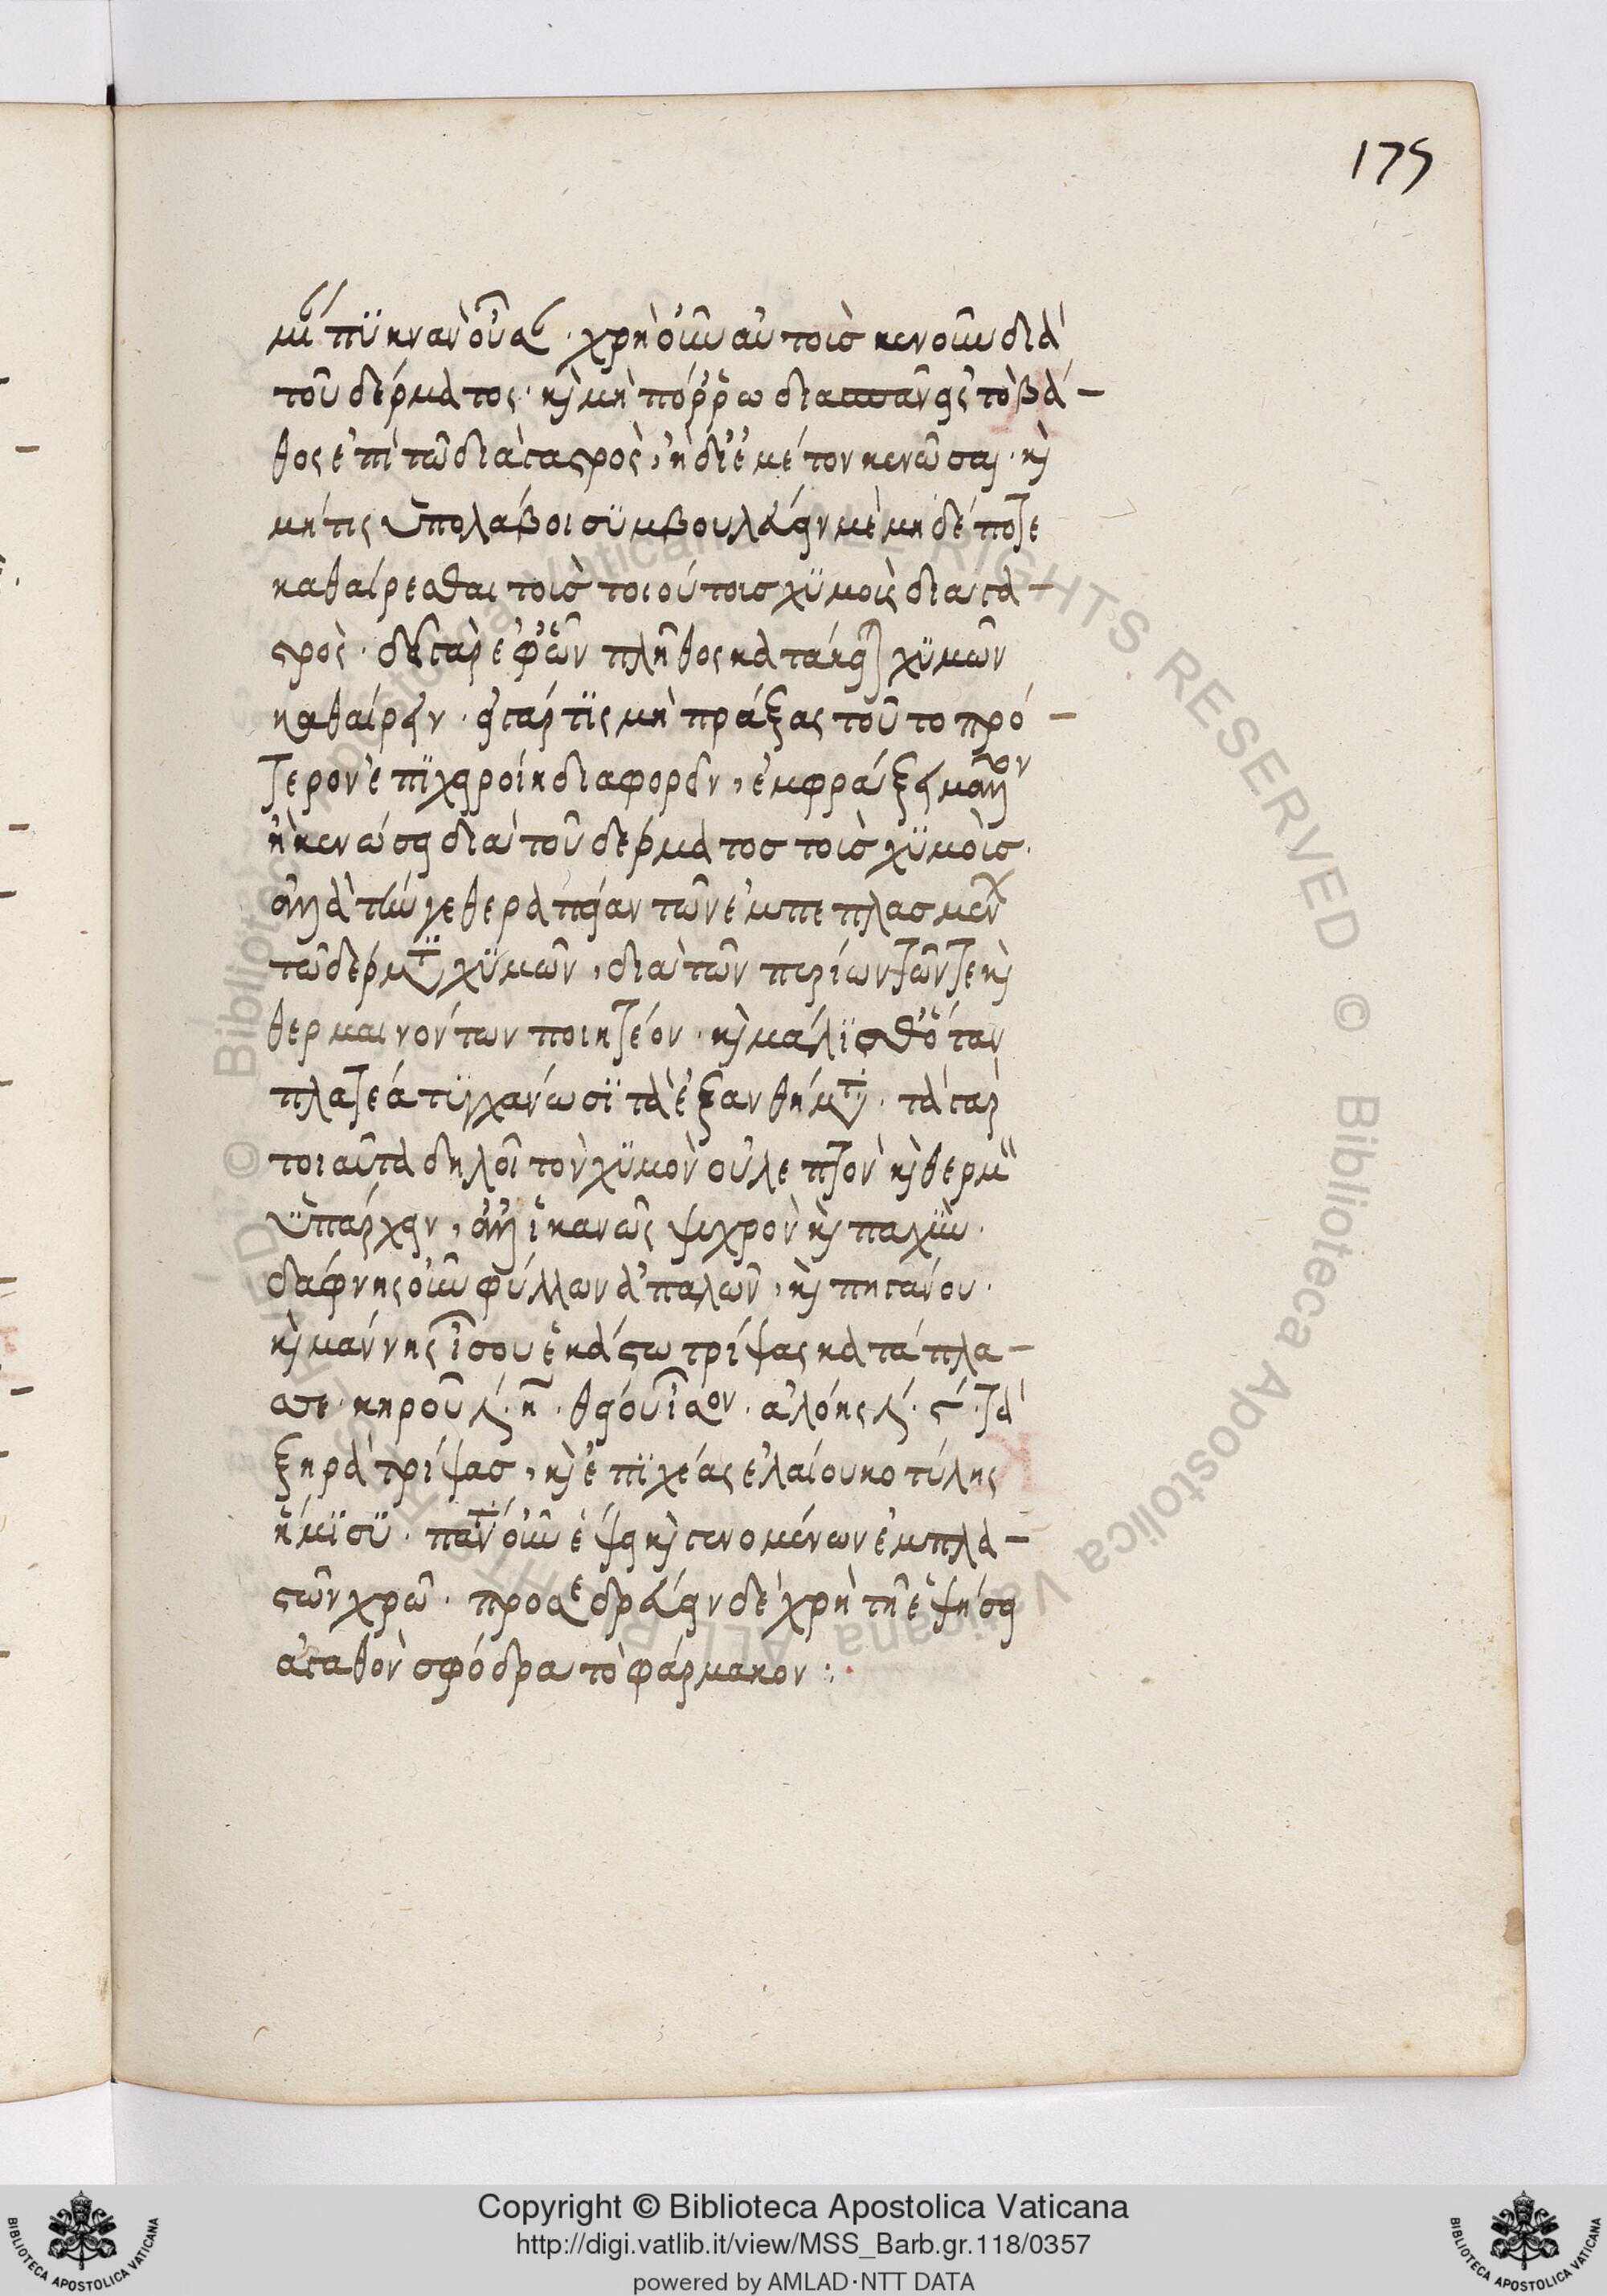 175
πϋκνὰν οὖσαν · χρὴ οὖν αὐτοὺς κενοῦν διὰ
τοῦ δέρματος · καὶ μὴ πόρρω διασπᾶν εἰς τὸ βά-
θος ἐπὶ τῶ διὰ γαστρὸς, ἢ δι' ἐμέτον κενῶσαι · καὶ
μή τις ὑπολάβοι σϋμβουλεύειν με μηδέποτε
καθαίρεσθαι τοὺς τοιούτους χϋμοὺς διὰ γα-
στρός · δεῖ γὰρ ἐφ' ὧν πλῆθος κατάκειται χϋμῶν
καθαίρειν · εἰ γάρ τϊς μὴ πράξας τοῦτο πρό-
τερον ἐπϊχειροίη διαφορεῖν, ἐμφράξει μᾶλλον
ἢ κενώσει διὰ τοῦ δέρματος τοὺς χϋμούς ·
ἀλλὰ τήν γε θεραπείαν τῶν ἐμπεπλασμένων
τῶ δέρματϊ χϋμῶν, διὰ τῶν τεμνόντων τε καὶ
θερμαινόντων ποιητέον · καὶ μάλϊσθ' ὅταν
πλατέα τϋγχάνωσϊ τὰ ἐξανθήματα · τὰ γὰρ
τοιαῦτα δηλοῖ τὸν χϋμὸν οὐ λεπτὸν καὶ θερμὸν
ϋπάρχειν, ἀλλ' ἱκανῶς ψυχρὸν καὶ παχϋν ·
δάφνης οὖν φύλλων ἁπαλῶν, καὶ πηγάνου ·
καὶ μάννης ἴσου ἑκάστω τρίψας κατάπλα-
σσε · κηροῦ λί · η · θείου ἴσον · ἀλόης λι · ϛ · τὰ
ξηρὰ τρίψας, καὶ ἐπϊχέας ἐλαίου κοτύλης
ἥμϊσϋ · πάντα οὖν ἕψει καὶ γενομένων ἐμπλά-
στῶν χρῶ · προσεδρεύειν δὲ χρὴ τῆ ἑψήσει
ἀγαθὸν σφόδρα τὸ φάρμακον :·
Copyright © Biblioteca Apostolica Vaticana
http://digi.vatlib.it/view/MSS_Barb.gr.118/0357
powered by AMLAD·NTT DATA